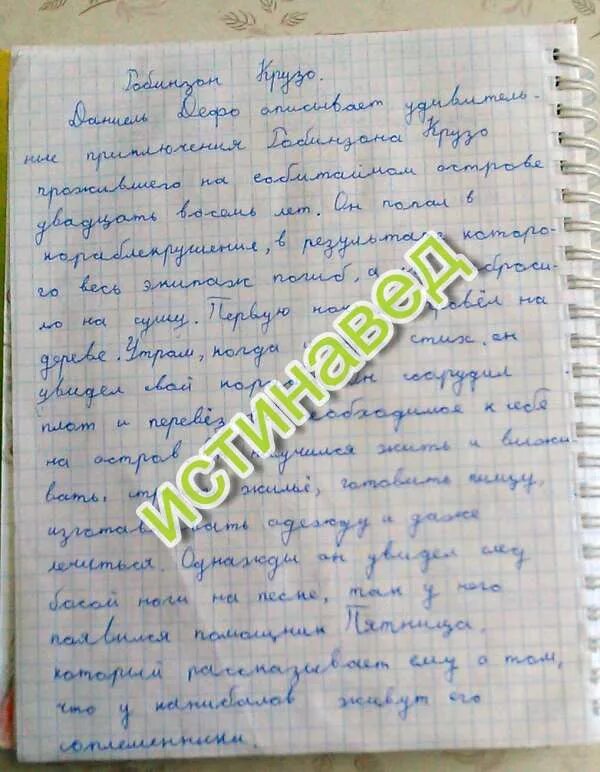 Робинзон Крузо.
Даниель Дефо описывает удивитель-
ные приключения Робинзона Крузо
прожившего на
двадцать восемь лет. Он попал в
кораблекрушение, в результате которо-
го весь экипаж погиб, а броси-
ло на сушу. Первую провёл на
дереве. Утром, когда стих, он
увидел свой соорудил
плот и перевёз необходимое к себе
на остров научился жить и выжи-
вать, жильё, готовить пищу,
одежду и даже
лечиться. Однажды он увидел след
босой ноги на песке, так у него
появился помощник Пятница,
который рассказывает ему о том,
что у канибалов живут его
соплеменники.
истинавед